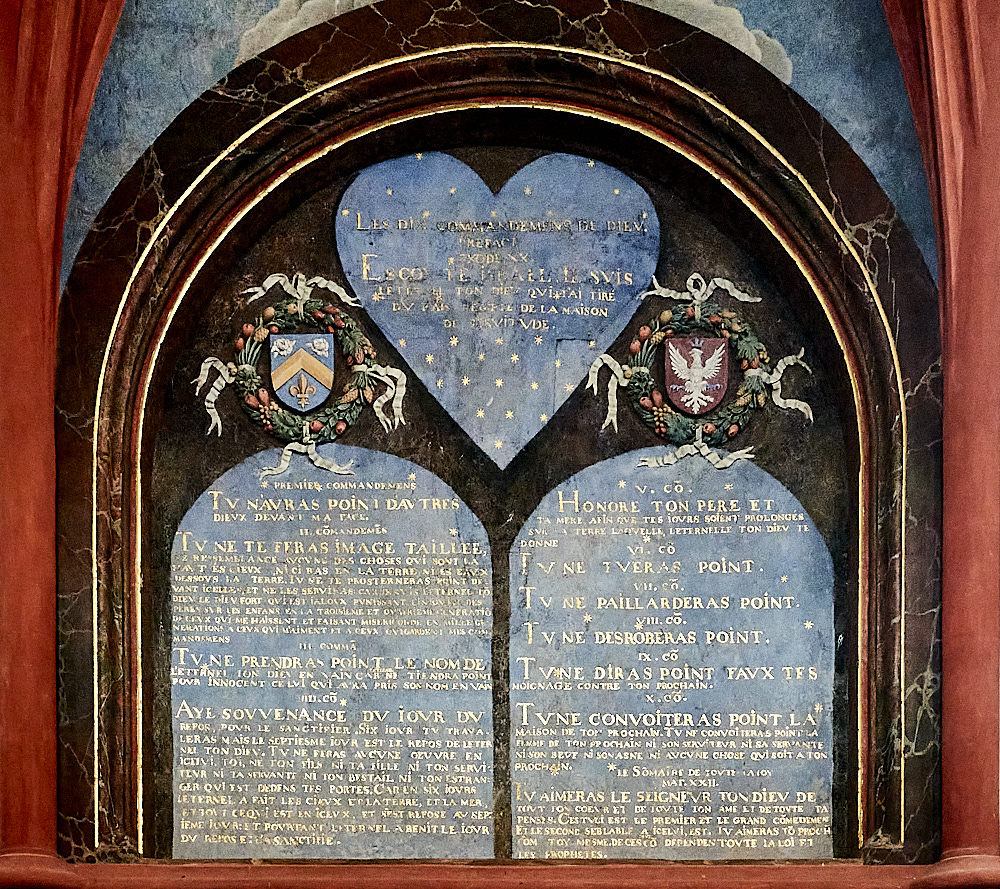 LES DIX COMMANDEMENS DE DIEV.
PREFACE
EXODE XX.
ESCOVTE ISRAEL IE SVIS
LETERNEL TON DIEV QVI TAI TIRÉ
DV PAIS DEGIPTE DE LA MAISON
DE SERVITVDE.
PREMIER COMMANDEMENS
TV N'AVRAS POINT D'AVTRES
DIEVX DEVANT MA FACE.
II. COMANDEMĒS
TV NE TE FERAS IMAGE TAILLEE,
NE RESSEMBLANCE AVCVNE DES CHOSES QVI SONT LA
HAVT ES CIEVX, NI CI BAS EN LA TERRE NI ES EAVX
DESSOVS LA TERRE. TV NE TE PROSTERNERAS POINT DE
VANT ICELLES, ET NE LES SERVIRAS CAR IE SVIS LETERNEL TŌ
DIEV LE DIEV FORT QVI EST IALOVX PVNISSANT LINIQVITÉ DES
PERES SVR LES ENFANS EN LA TROISIEME ET QVATRIEME GENERATIŌ
DE CEVX QVI ME HAISSENT, ET FAISANT MISERICORDE EN MILLE GE
NERATIONS A CEVX QVI M'AIMENT ET A CEVX QVI GARDENT MES COM
MANDEMENS
III COMMĀ
TV NE PRENDRAS POINT LE NOM DE
L'ETERNEL TON DIEV EN VAIN CAR NE TIENDRA POINT
POVR INNOCENT CELVI QVI AVRA PRIS SON NOM EN VAIN
IIII. CŌ.
AYE SOVVENANCE DV IOVR DV
REPOS, POVR LE SANCTIFIER. SIX IOVR TV TRAVA
LERAS MAIS LE SEPTIESME IOVR EST LE REPOS DE LETER
NEL TON DIEV. TV NE FERAS AVCVNE OEVVRE EN
ICELVI. TOI, NE TON FILS NI TA FILLE NI TON SERVI
TEVR NI TA SERVANTE NI TON BESTAIL NI TON ESTRAN
GER QVI EST DEDENS TES PORTES. CAR EN SIX IOVRS
LETERNEL A FAIT LES CIEVX ET LA TERRE, ET LA MER,
ET TOVT CE QVI EST EN ICEVX, ET S'EST REPOSE AV SEPT
IEME IOVR: ET POVRTANT L'ETERNEL A BENIT LE IOVR
DV REPOS ET LA SANCTIFIE.
V. CŌ.
HONORE TON PERE ET
TA MERE AFIN QVE TES IOVRS SOIENT PROLONGES
SVR LA TERRE LAQVELLE, LETERNELLE TON DIEV TE
DONNE
VI. CŌ
TV NE TVERAS POINT.
VII. CŌ.
TV NE PAILLARDERAS POINT.
VIII. CŌ.
TV NE DESROBERAS POINT.
IX. CŌ.
TV NE DIRAS POINT FAVX TES
MOIGNAGE CONTRE TON PROCHAIN.
X. CŌ.
TV NE CONVOITERAS POINT LA
MAISON DE TON PROCHAIN. TV NE CONVOITERAS POINT LA
FEMME DE TON PROCHAIN NI SON SERVITEVR NI SA SERVANTE
NI SON BEVF NI SON ASNE NI AVCVNE CHOSE QVI SOIT A TON
PROCHAIN.
LE SOMAIRE DE TOVTE LA LOY
MAT. XXII.
TV AIMERAS LE SEIGNEVR TON DIEV DE
TOVT TON COEVR ET DE TOVTE TON AME ET DE TOVTE TA
PENSEE. CESTVI EST LE PREMIER ET LE GRAND CŌMEDEMENT
ET LE SECONE SEBLABLE A ICELVI, EST. TV AIMERAS TŌ PROCH
COM TOY MESME. DE CES DEPENDEN TOVTE LA LOI ET
LES PROPHETES.